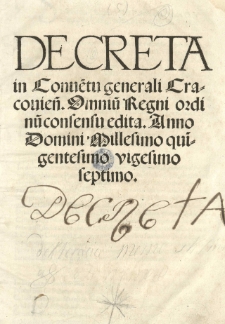 DECRETA
in Conuētu generali Cra-
couieñ. Omniū Regni ordi
nū consensu edita. Anno
Domini Millesimo quī
gentesimo vigesimo
septimo.
DECRETA